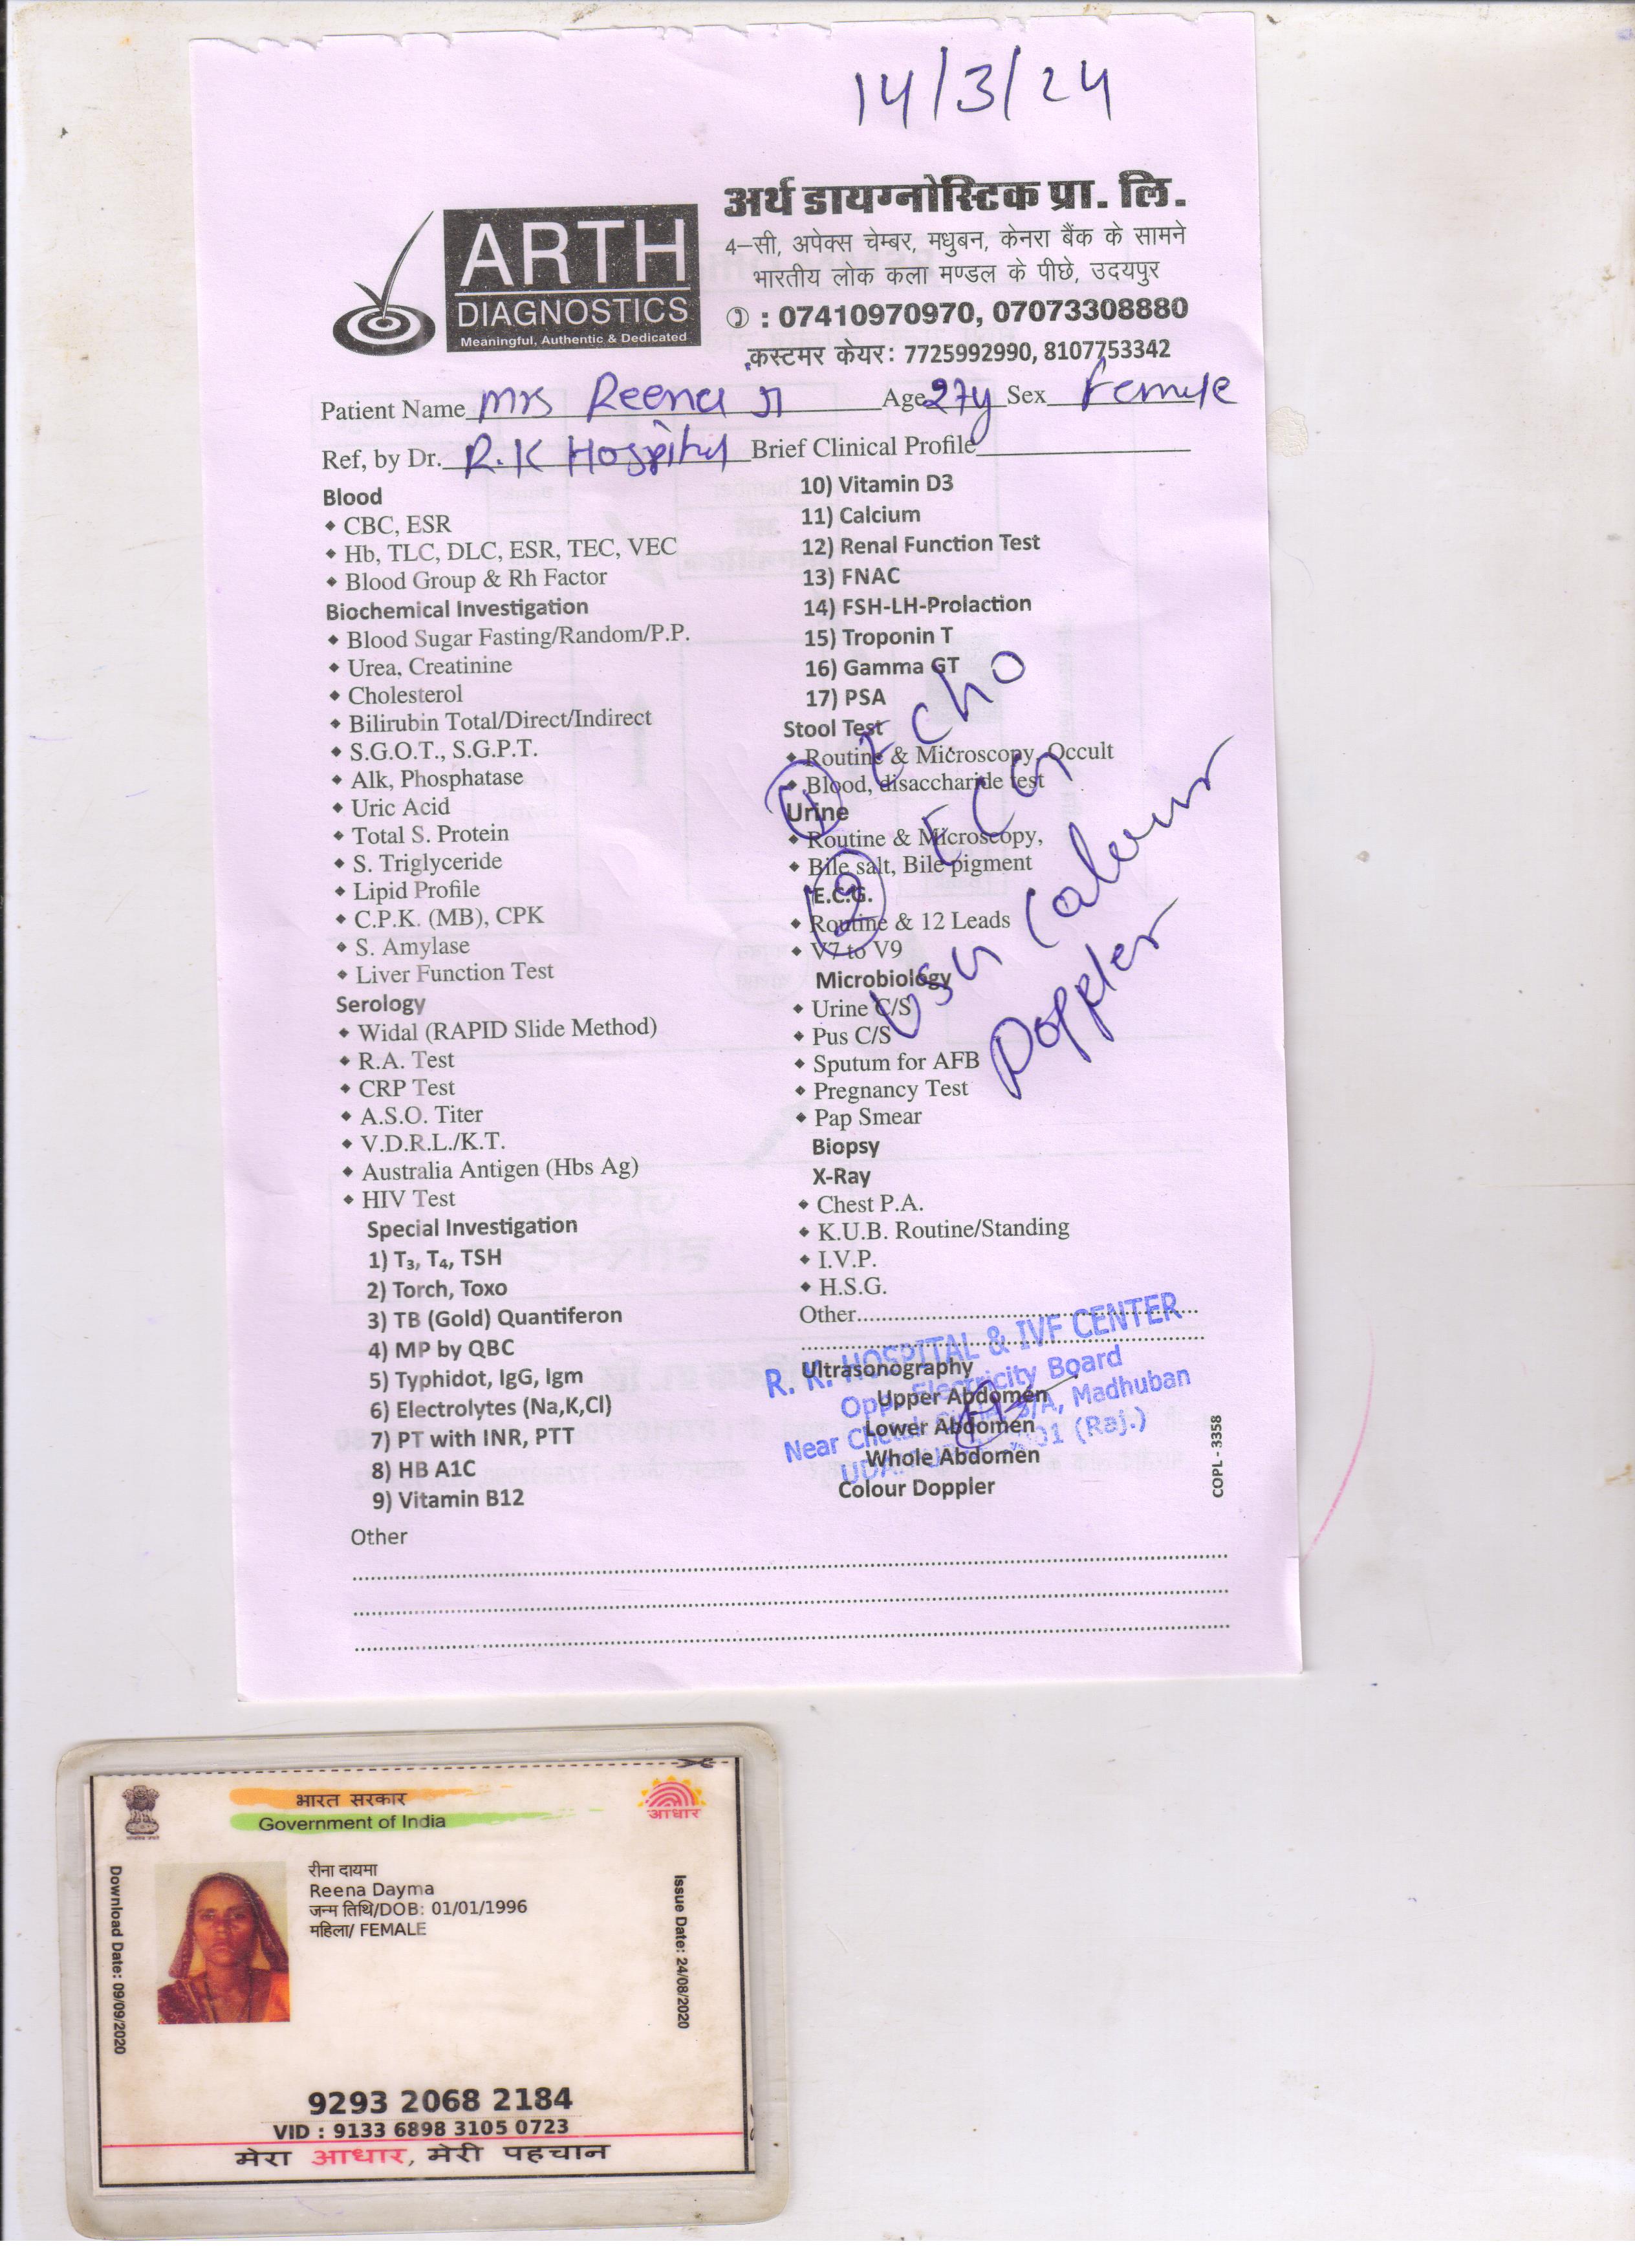 14/3/24
ARTH
DIAGNOSTICS
Meaningful, Authentic & Dedicated
अर्थ डायग्नोस्टिक प्रा. लि.
4–सी, अपेक्स चेम्बर, मधुबन, केनरा बैंक के सामने
भारतीय लोक कला मण्डल के पीछे, उदयपुर
: 07410970970, 07073308880
कस्टमर केयर: 7725992990, 8107753342
Patient Name Mrs Reena Ji Age 27y Sex Female
Ref, by Dr. R.K Hospital Brief Clinical Profile
Blood
CBC, ESR
Hb, TLC, DLC, ESR, TEC, VEC
Blood Group & Rh Factor
Biochemical Investigation
Blood Sugar Fasting/Random/P.P.
Urea, Creatinine
Cholesterol
Bilirubin Total/Direct/Indirect
S.G.O.T., S.G.P.T.
Alk, Phosphatase
Uric Acid
Total S. Protein
S. Triglyceride
Lipid Profile
C.P.K. (MB), CPK
S. Amylase
Liver Function Test
Serology
Widal (RAPID Slide Method)
R.A. Test
CRP Test
A.S.O. Titer
V.D.R.L./K.T.
Australia Antigen (Hbs Ag)
HIV Test
Special Investigation
1) T₃, T₄, TSH
2) Torch, Toxo
3) TB (Gold) Quantiferon
4) MP by QBC
5) Typhidot, IgG, Igm
6) Electrolytes (Na,K,Cl)
7) PT with INR, PTT
8) HB A1C
9) Vitamin B12
Other
10) Vitamin D3
11) Calcium
12) Renal Function Test
13) FNAC
14) FSH-LH-Prolaction
15) Troponin T
16) Gamma GT
17) PSA
Stool Test
Routine & Microscopy, Occult
Blood, disaccharide test
Urine
Routine & Microscopy,
Bile salt, Bile pigment
E.C.G.
Routine & 12 Leads
V7 to V9
Microbiology
Urine C/S
Pus C/S
Sputum for AFB
Pregnancy Test
Pap Smear
Biopsy
X-Ray
Chest P.A.
K.U.B. Routine/Standing
I.V.P.
H.S.G.
Other
Ultrasonography
Upper Abdomen
Lower Abdomen
Whole Abdomen
Colour Doppler
1 Echo
2 ECG
USG Colour
Doppler
R. K. HOSPITAL & IVF CENTER
Opp. Electricity Board
Near Madhuban
(Raj.)
COPL - 3358
भारत सरकार
Government of India
आधार
रीना दायमा
Reena Dayma
जन्म तिथि/DOB: 01/01/1996
महिला/ FEMALE
Download Date: 09/09/2020
Issue Date: 24/08/2020
9293 2068 2184
VID : 9133 6898 3105 0723
मेरा आधार, मेरी पहचान